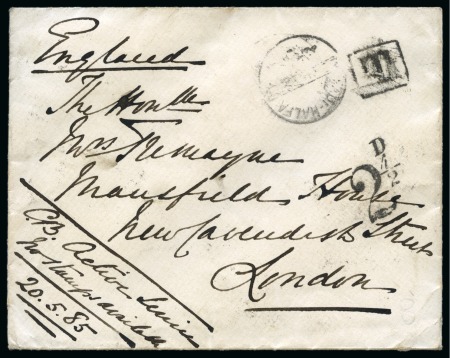 England
The Honble
Mrs Tremayne
Mansfield House
New Cavendish Street
London
On Active Service
No stamps available
20.5.85
DI-HALFA
T
D
2